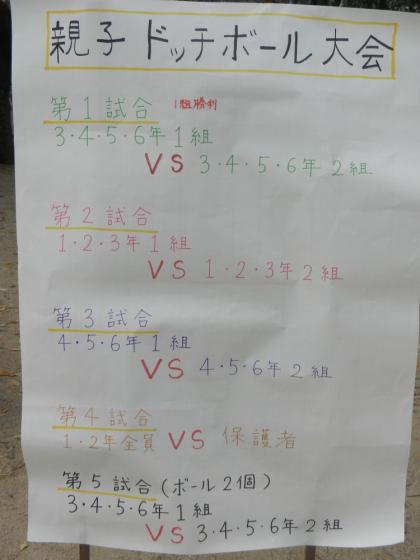 親子 ドッチボール大会
第1試合 1組勝利
3・4・5・6年1組
VS 3・4・5・6年2組
第2試合
1・2・3年1組
VS 1・2・3年2組
第3試合
4・5・6年1組
VS 4・5・6年2組
第4試合
1・2年全員 VS 保護者
第5試合(ボール2個)
3・4・5・6年1組
VS 3・4・5・6年2組